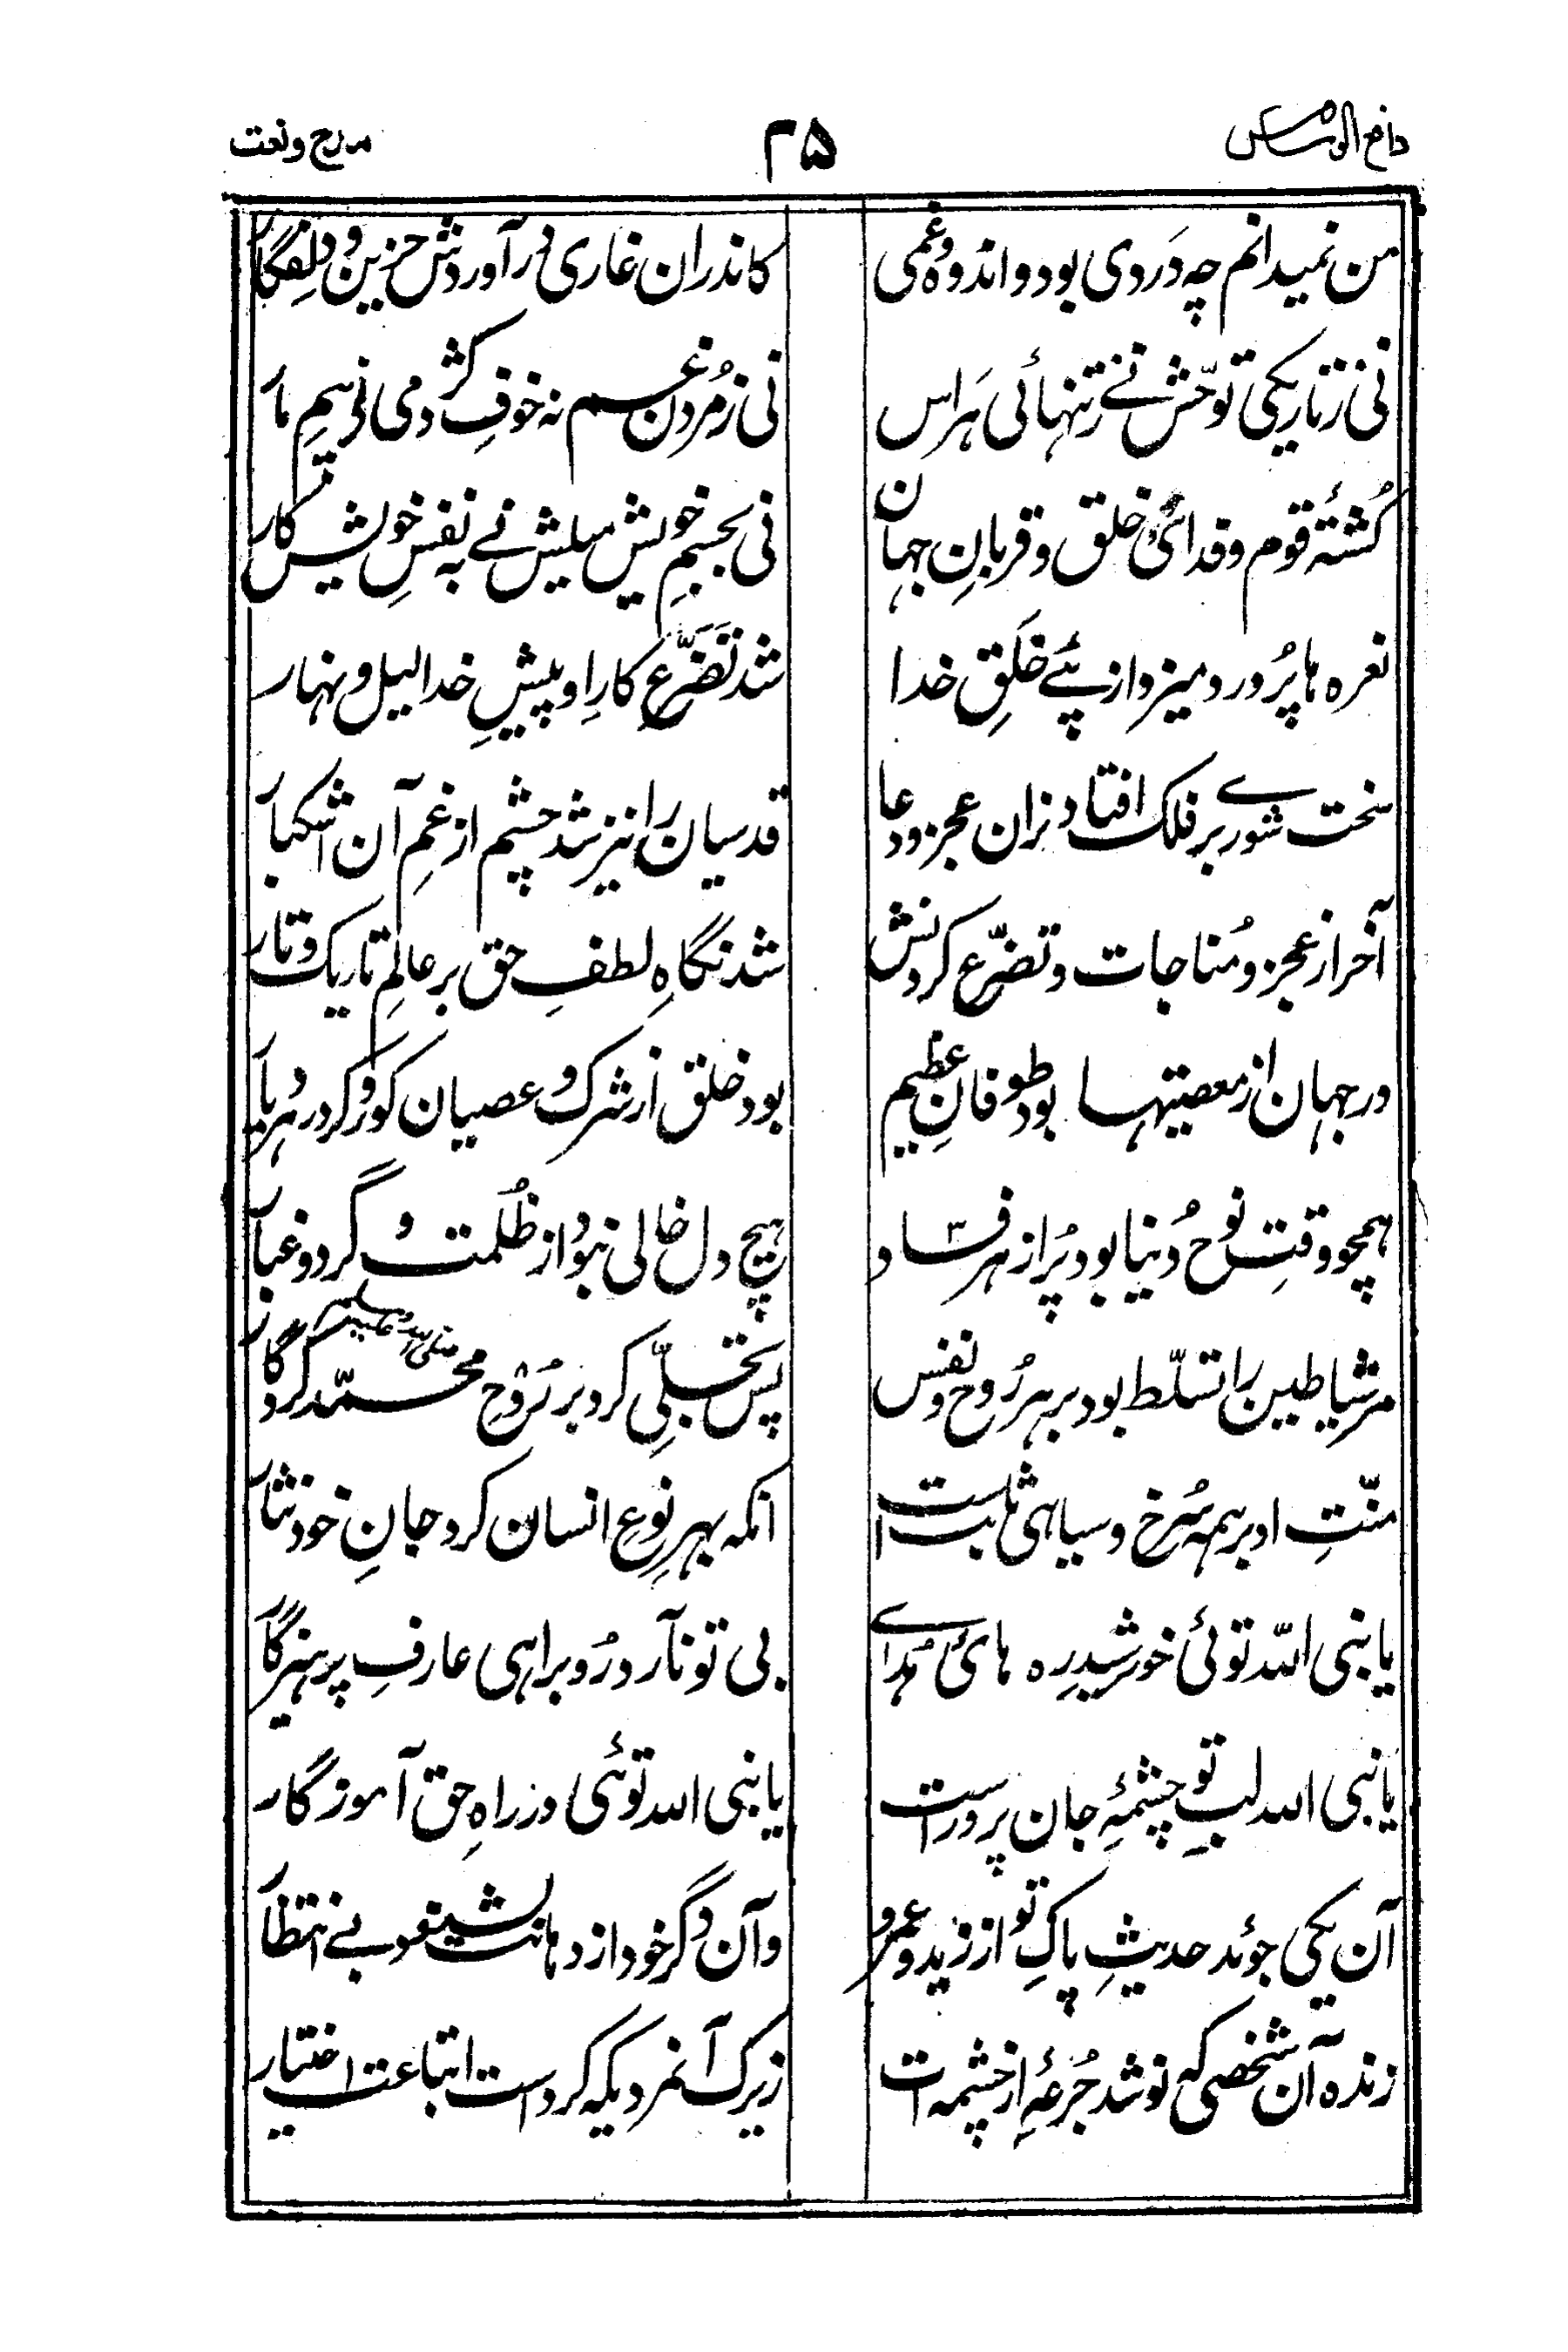 دافع الوساوس ۲۵ مدح ونعت
من نمیدانم چہ دَردی بود و اندوہ وغمی کاندران غاری در آوردش حزین و دلِفگار
نی زتاریکی توحّش نے زتنہائی ہَراس نی زمُردن غم نہ خوفِ کژ دمی نی ہیمِ مار
کُشتۂ قوم و فدائیِ خلق و قربانِ جہان نی بجسمِ خویش میلش نے بہ نفسِ خویش کار
نعرہ ہا پُر درد میزد از پئے خَلقِ خدا شد تَضَرَّع کارِ او پیشِ خدا لیل و نہار
سخت شورے بر فلک افتاد زان عجز و دعا قدسیان را نیز شد چشم از غمِ آن اشکبار
آخر از عجز و مُناجات و تضرّع کردنش شد نگاہِ لطفِ حق بر عالمِ تاریک و تار
در جہان از معصیتہا بود طوفانِ عظیم بود خلق از شرک و عصیان کور و کر در ہر دیار
ہمچو وقتِ نوح دُنیا بود پُر از ہر فساد ہیچ دل خالی نبود از ظُلمت و گرد و غبار
مر شیاطین را تسلّط بود بر ہر رُوح و نفس پس تجلّی کرد بر رُوحِ محمّد صلی اللہ علیہ وسلم کردگار
منّتِ او بر ہمہ سُرخ و سیاہی ثابت است انکہ بہرِ نوعِ انسان کرد جانِ خود نثار
یا نبی اللّہ توئی خورشیدِ رہ ہائ ہُدای بی تو نآرد رُو براہی عارفِ پرہیزگار
یا نبی اللہ لبِ تو چشمۂِ جان پرور است یا نبی اللہ توئی در راہِ حق آموزگار
آن یکی جوئد حدیثِ پاکِ تو از زید و عمرو وآن دگر خود از دہانت بشنود بے انتظار
زندہ آن شخصی کہ نوشد جُرعۂِ از چشمہ ات زیرک آنمردیکہ کردست اتباعت اختیار